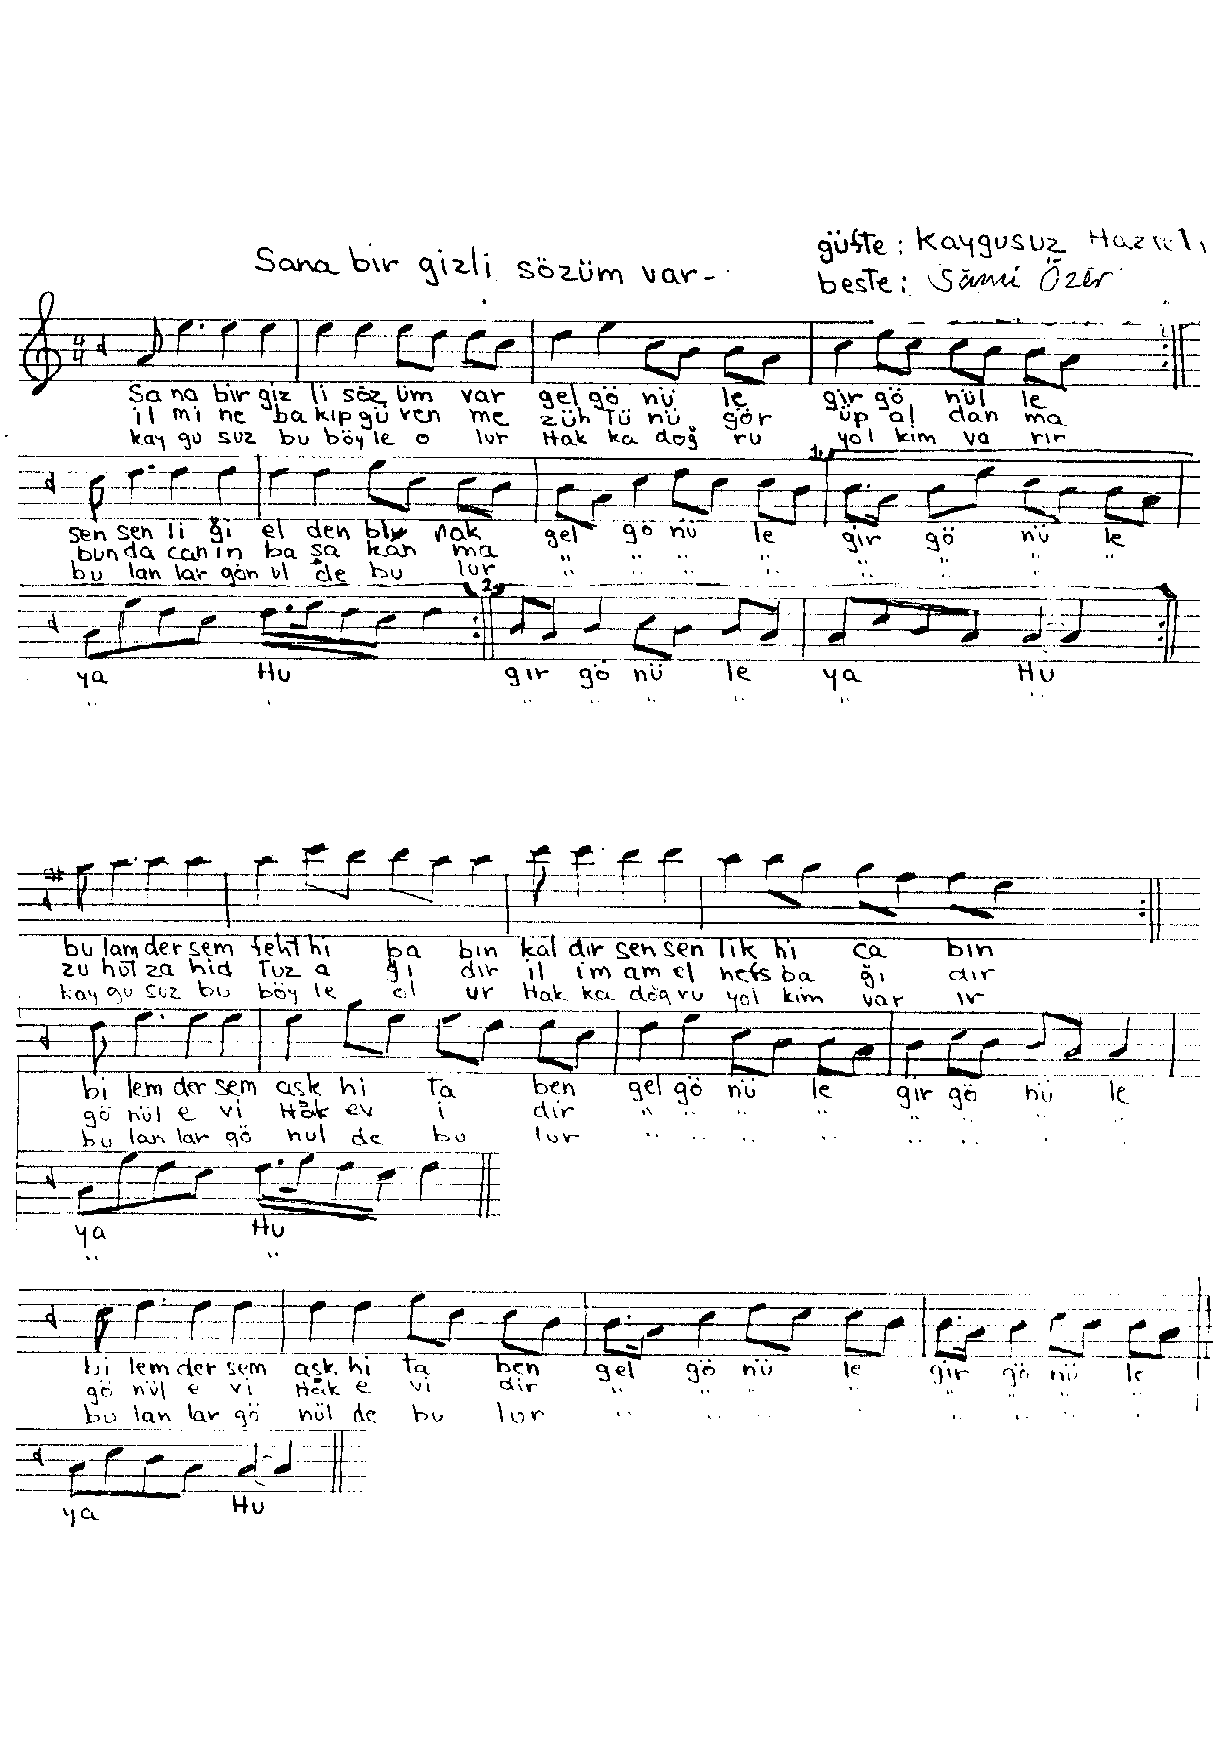 Sana bir gizli sözüm var
güfte : Kaygusuz
beste : Sâmi Özer
4 4
Sa na bir giz li söz üm var gel gö nü le gir gö nül le
il mi ne ba kıp gü ven me züh tü nü gör üp al dan ma
kay gu suz bu böy le o lur Hak ka doğ ru yol kim va rır
1.
sen sen li ği el den nak gel gö nü le gir gö nü le
bun da can ın ba şa kan ma " " " " " " " "
bu lan lar gön ül de bu lur " " " " " " " "
2.
ya Hu gir gö nü le ya Hu
" " " " " " " "
bu lam der sem feht hi ba bın kal dır sen sen lik hi ca bın
zu hüt za hid tuz a ğı dır il im am el nefs ba ğı dır
kay gu suz bu böy le ol ur Hak ka doğ ru yol kim var ır
bi lem der sem aşk hi ta ben gel gö nü le gir gö nü le
gö nül e vi Hak ev i dir " " " " " " " "
bu lan lar gö nul de bu lur " " " " " " " "
ya Hu
" "
bi lem der sem aşk hi ta ben gel gö nü le gir gö nü le
gö nül e vi Hak e vi dir " " " " " " " "
bu lan lar gö nül de bu lur " " " " " " " "
ya Hu